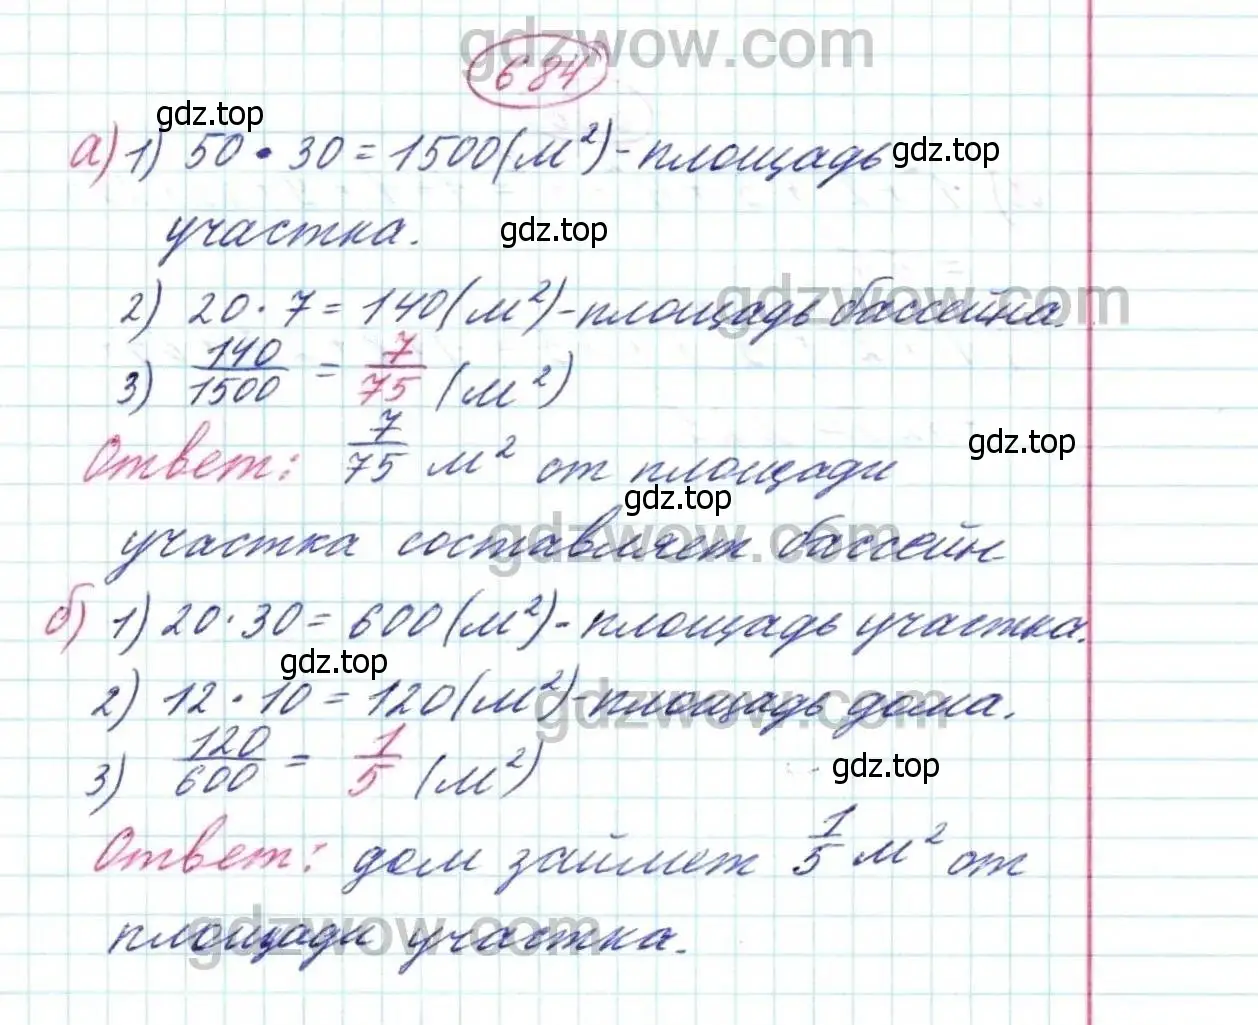 gdzwow.com
684
gdz.top
а) 1) 50 · 30 = 1500(м²) - площадь
gdz.top
участка.
gdz.top
gdzwow.com
2) 20 · 7 = 140(м²) - площадь бассейна.
3) 140/1500 = 7/75 (м²)
Ответ: 7/75 м² от площади
gdz.top
gdz.top
участка составляет бассейн
gdzwow.com
б) 1) 20 · 30 = 600(м²) - площадь участка.
gdz.top
2) 12 · 10 = 120(м²) - площадь дома.
gdzwow.com
3) 120/600 = 1/5 (м²)
gdz.top
Ответ: дом займет 1/5 м² от
площади участка.
gdzwow.com